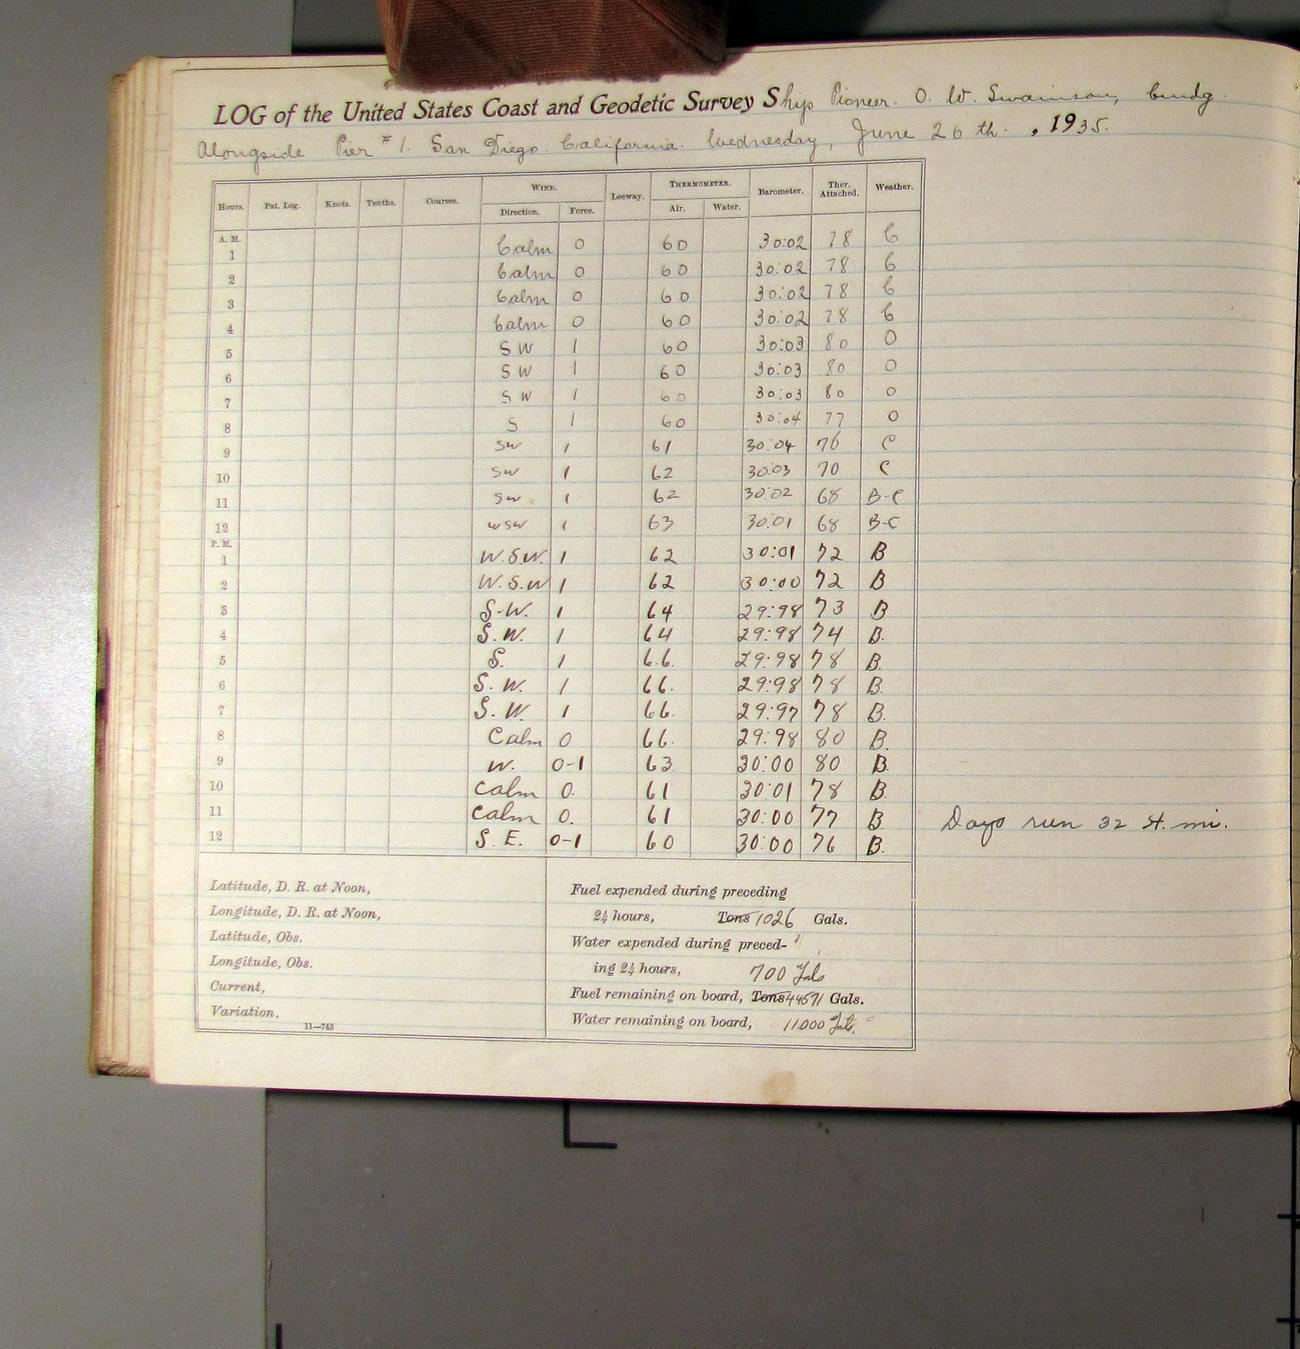 LOG of the United States Coast and Geodetic Survey Ship Pioneer. O. W. Swainson, Cmdg.
Alongside Pier #1. San Diego California. Wednesday, June 26th., 1935.
Hours. Pat. Log. Knots. Tenths. Courses. WIND. Leeway. THERMOMETER. Barometer. Ther. Attached. Weather.
Direction. Force. Air. Water.
A. M.
1 Calm 0 60 30:02 78 C
2 Calm 0 60 30:02 78 C
3 Calm 0 60 30:02 78 C
4 Calm 0 60 30:02 78 C
5 SW 1 60 30:03 80 O
6 SW 1 60 30:03 80 O
7 SW 1 60 30:03 80 O
8 S 1 60 30:04 77 O
9 SW 1 61 30:04 76 C
10 SW 1 62 30:03 70 C
11 SW 1 62 30:02 68 B-C
12 WSW 1 63 30:01 68 B-C
P. M.
1 W.S.W. 1 62 30:01 72 B
2 W.S.W 1 62 30:00 72 B
3 S.W. 1 64 29:98 73 B
4 S.W. 1 64 29:98 74 B.
5 S. 1 66. 29:98 78 B.
6 S.W. 1 66. 29:98 78 B.
7 S.W. 1 66. 29:97 78 B.
8 Calm 0 66. 29:98 80 B.
9 W. 0-1 63 30:00 80 B.
10 Calm 0. 61 30:01 78 B.
11 Calm 0. 61 30:00 77 B. Days run 32 St. mi.
12 S.E. 0-1 60 30:00 76 B.
Latitude, D. R. at Noon,
Longitude, D. R. at Noon,
Latitude, Obs.
Longitude, Obs.
Current,
Variation,
11—743
Fuel expended during preceding
24 hours, Tons 1026 Gals.
Water expended during preced-
ing 24 hours, 700 Gals
Fuel remaining on board, Tons 44571 Gals.
Water remaining on board, 11000 Gals.